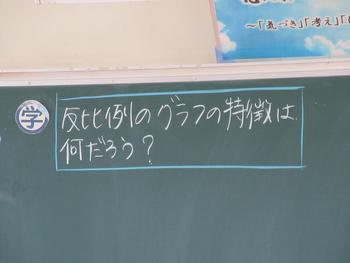 ～「気づき」「考え」
学
反比例のグラフの特徴は
何だろう？